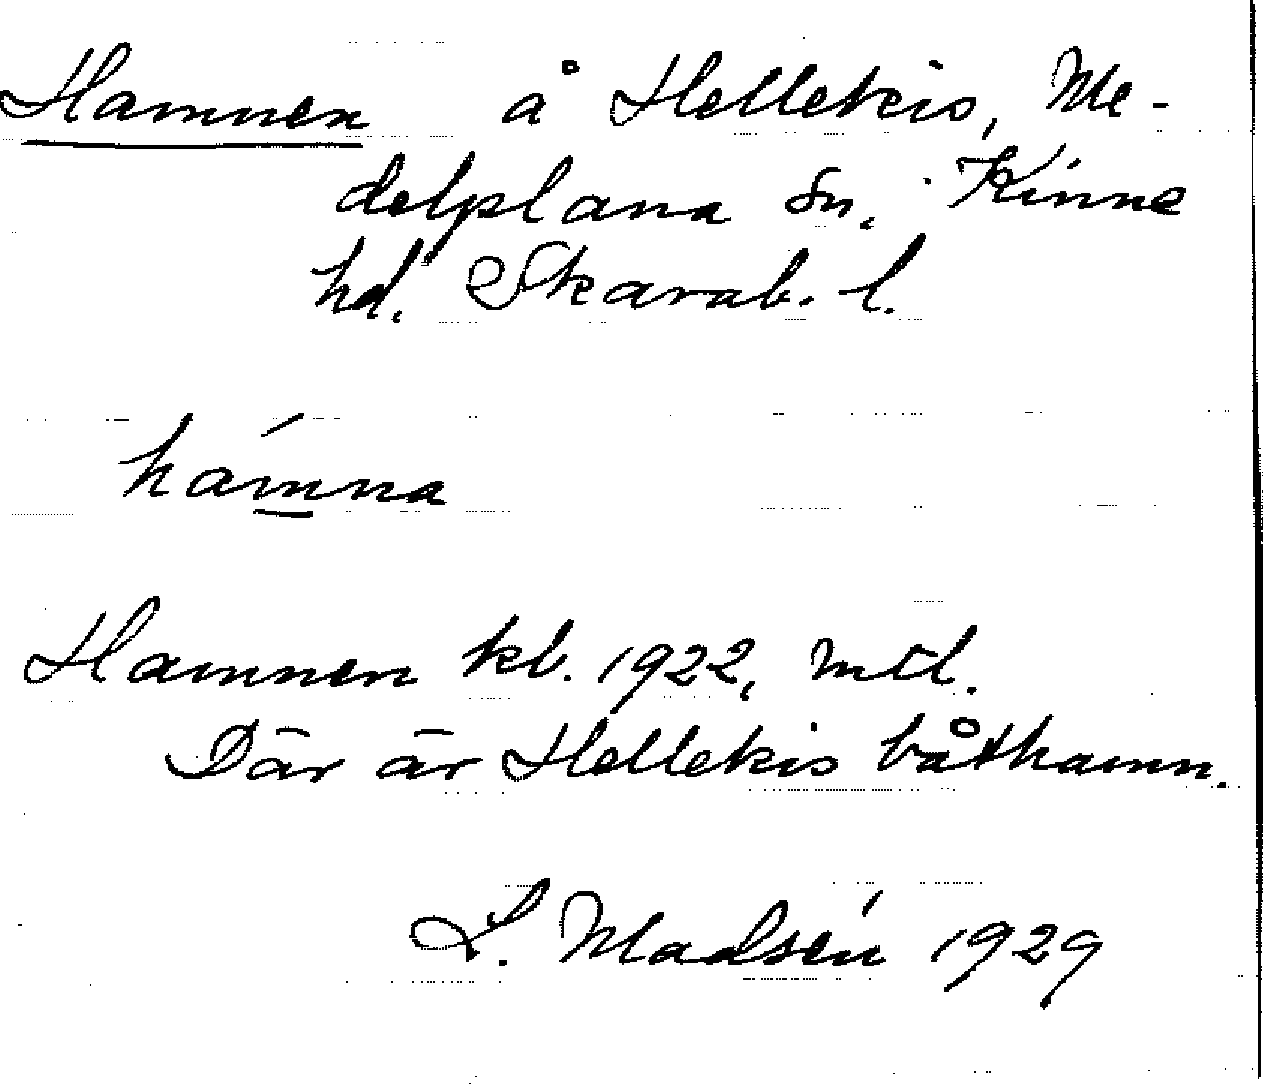 Hamnen å Hellekis, Me-
delplana sn. Kinne
hd. Skarab. l.
hámna
Hamnen kb. 1922, mtl.
Där är Hellekis båthamn.
L. Madsén 1929